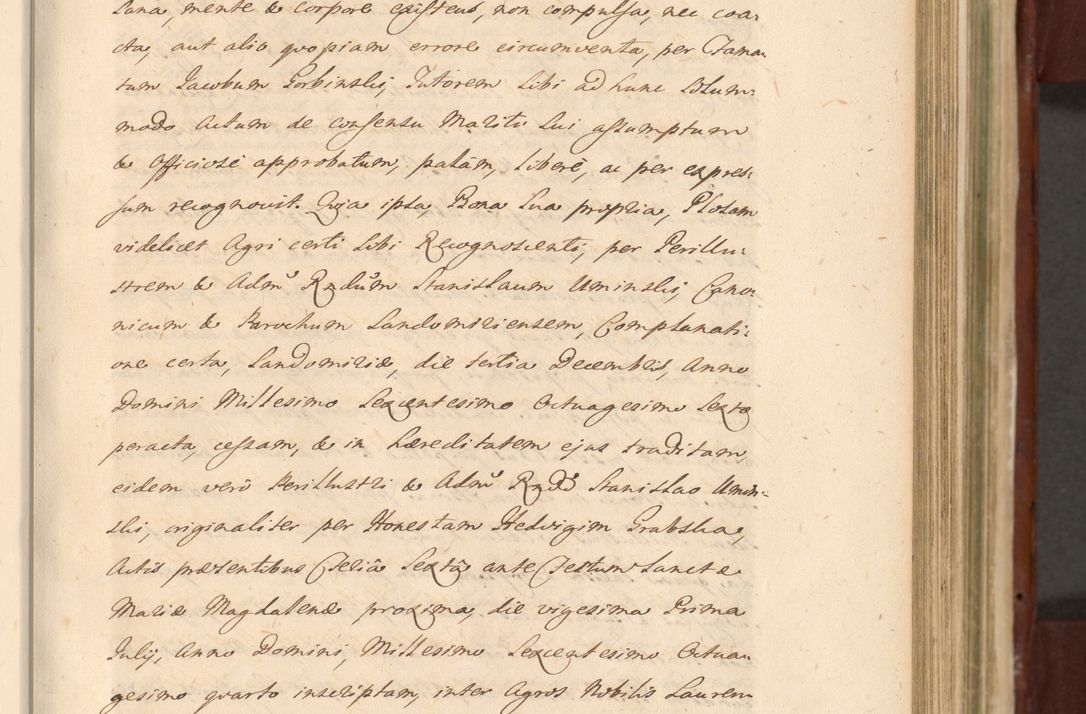 sana, mente & corpore existens, non compulsa, nec coa:
cta, aut alio quopiam errore circumventa, per Fama:
tum Jacobum Gorbinski, Tutorem sibi ad hunc solum:
modo actum de consensu Mariti sui assumptum
& officiosè approbatum, palàm, liberè, ac per expres:
sum recognovit. Quia ipsa, Bona sua propria, Plosam
videlicet Agri certi sibi Recognoscenti, per Perillu:
strem & Admū Rndūm Stanislaum Uminski, Cano:
nicum & Parochum Sandomiriensem, Complanati:
one certa, Sandomiriæ, die tertia Decembris, Anno
Domini Millesimo Sexcentesimo Octuagesimo Sexto
peracta, cessam, & in hæreditatem ejus traditam,
eidem verò Perillustri & Admū Rndo Stanislao Umin:
ski, originaliter per Honestam Hedvigim Grabska,
Actis præsentibus Feria Sexta ante Festum Sanctæ
Mariæ Magdalenæ proxima, die vigesima Prima
July, Anno Domini, Millesimo Sexcentesimo Octua:
gesimo quarto inscriptam, inter Agros Nobilis Lauren: